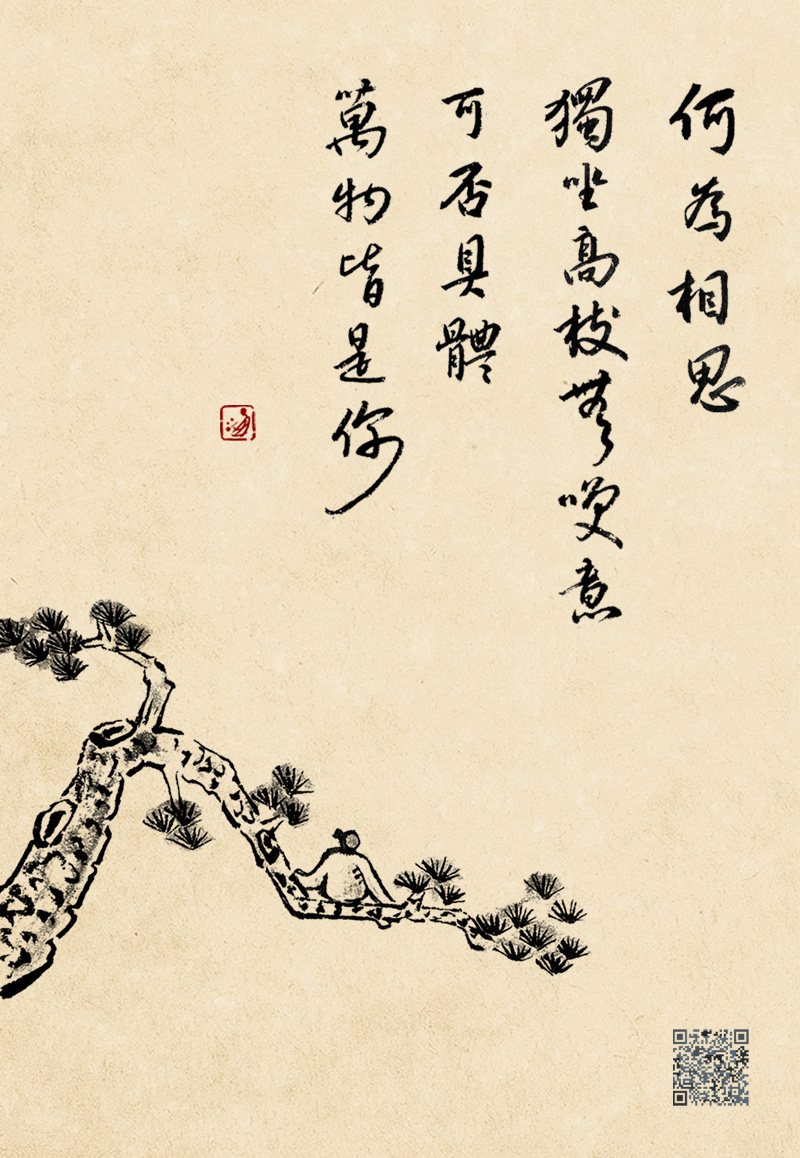 何為相思
獨坐高枝無意
可否具體
萬物皆是你